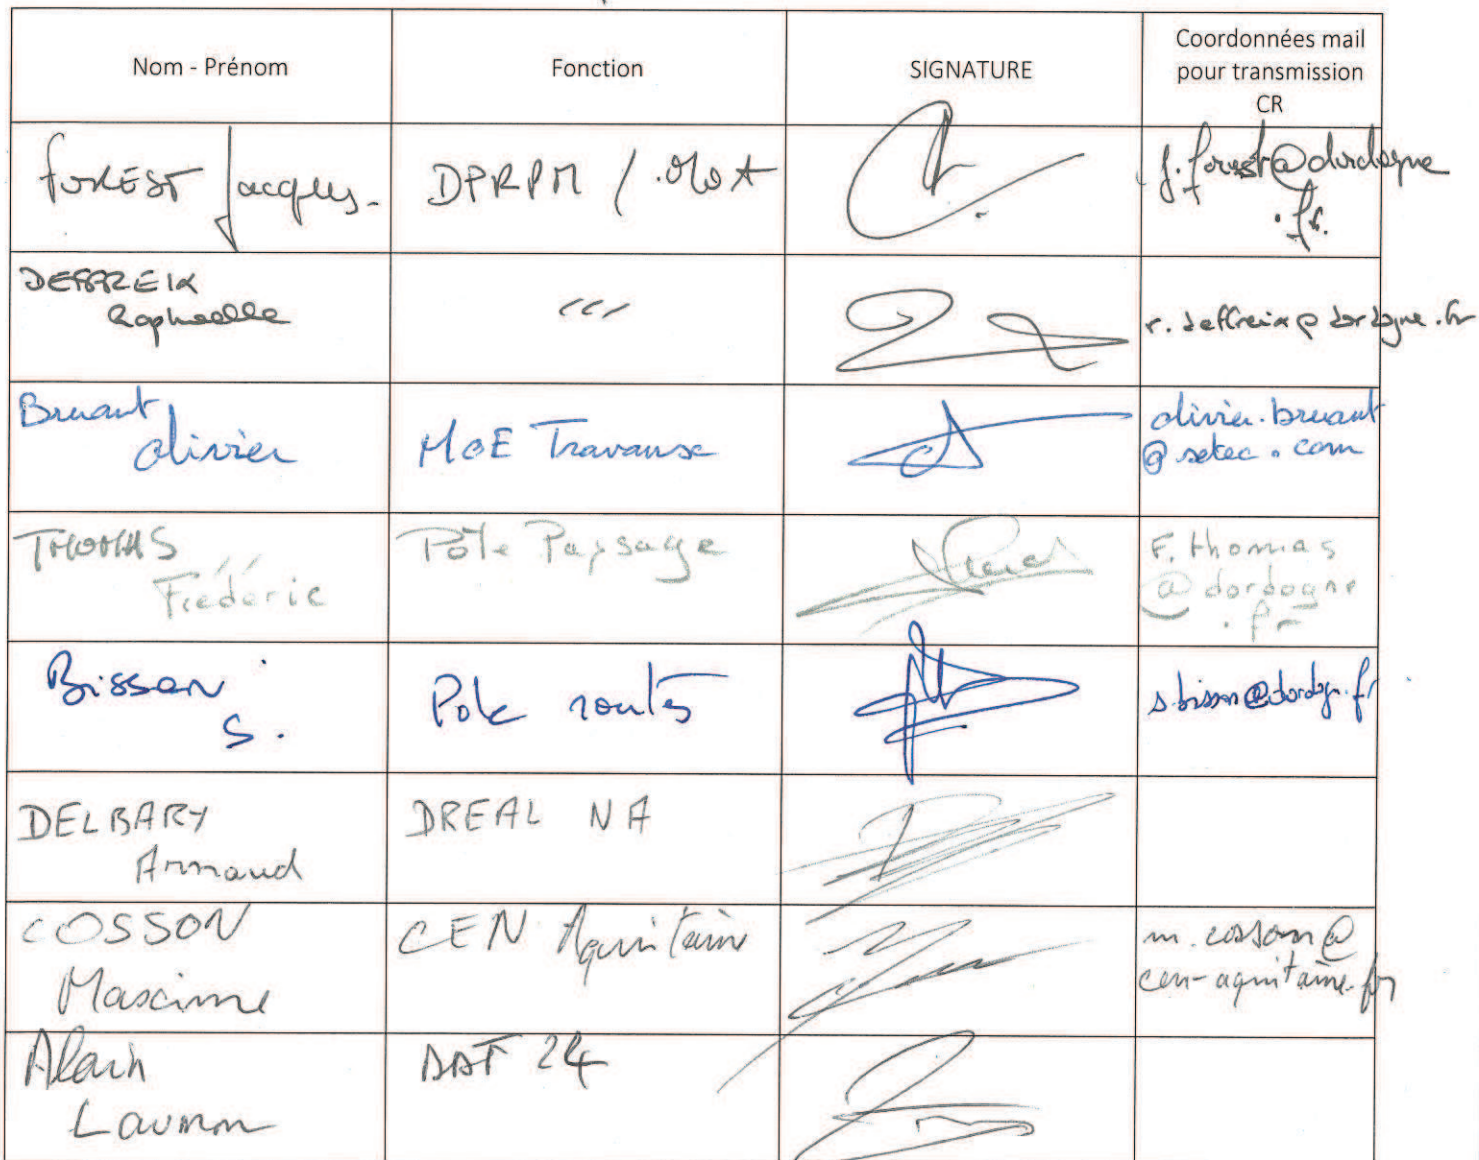 Nom - Prénom
Fonction
SIGNATURE
Coordonnées mail
pour transmission
CR
FOREST Jacques.
DPRPM /
j.forest@dordogne
.fr.
DEFFREIX
Raphaelle
r.deffreix@dordogne.fr
Bruant
Olivier
MOE Travaux
olivier.bruant
@setec.com
THOMAS
Frédéric
Pôle Paysage
F.thomas
@dordogne
.fr
Bisson
S.
Pole routes
DELBARY
Armaud
DREAL NA
COSSON
Maxime
CEN Aquitaine
m.cosson@
cen-aquitaine.fr
Alain
24